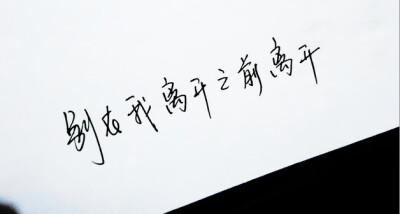 别在我离开之前离开